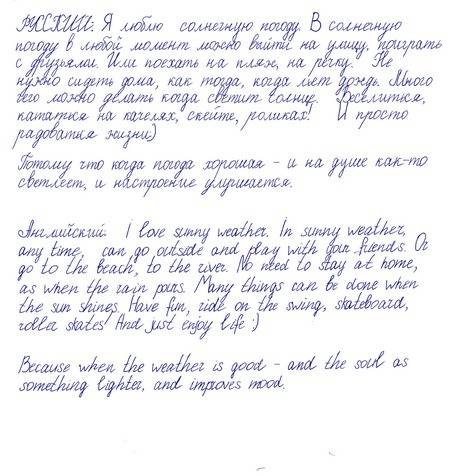 РУССКИЙ: Я люблю солнечную погоду. В солнечную
погоду в любой момент можно выйти на улицу, поиграть
с друзьями. Или поехать на пляж, на речку. Не
нужно сидеть дома, как тогда, когда льет дождь. Много
чего можно делать когда светит солнце. Веселиться,
кататься на качелях, скейте, роликах! И просто
радоваться жизни)
Потому что когда погода хорошая - и на душе как-то
светлеет, и настроение улучшается.
Английский: I love sunny weather. In sunny weather,
any time, can go outside and play with your friends. Or
go to the beach, to the river. No need to stay at home,
as when the rain pours. Many things can be done when
the sun shines. Have fun, ride on the swing, skateboard,
roller skates! And just enjoy life :)
Because when the weather is good - and the soul as
something lighter, and improves mood.